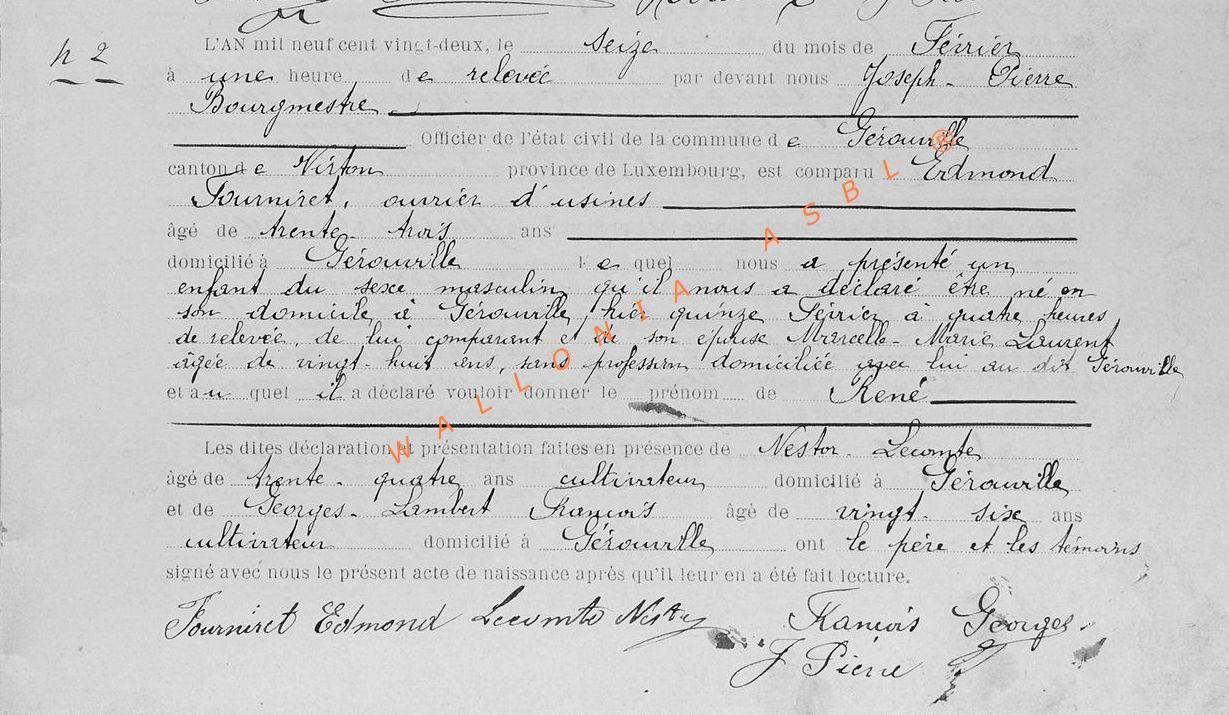 n 2
L'AN mil neuf cent vingt-deux, le seize du mois de Février
à une heure de relevée par devant nous Joseph - Pierre
Bourgmestre
Officier de l'état civil de la commune de Gérouville
canton de Virton province de Luxembourg, est comparu Edmond
Fourniret, ouvrier d'usines
âgé de trente-trois ans
domicilié à Gérouville lequel nous a présenté un
enfant du sexe masculin, qu'il nous a déclaré être né en
son domicile à Gérouville, hier quinze Février à quatre heures
de relevée, de lui comparant et de son épouse Marcelle-Marie Laurent
âgée de vingt-huit ans, sans profession domiciliée avec lui au dit Gérouville
et auquel il a déclaré vouloir donner le prénom de René
Les dites déclaration et présentation faites en présence de Nestor Lecomte
âgé de trente-quatre ans cultivateur domicilié à Gérouville
et de Georges-Lambert François âgé de vingt-six ans
cultivateur domicilié à Gérouville ont le père et les témoins
signé avec nous le présent acte de naissance après qu'il leur en a été fait lecture.
Fourniret Edmond Lecomte Nestor François Georges
J Pierre
WALLONIA ASBL ®